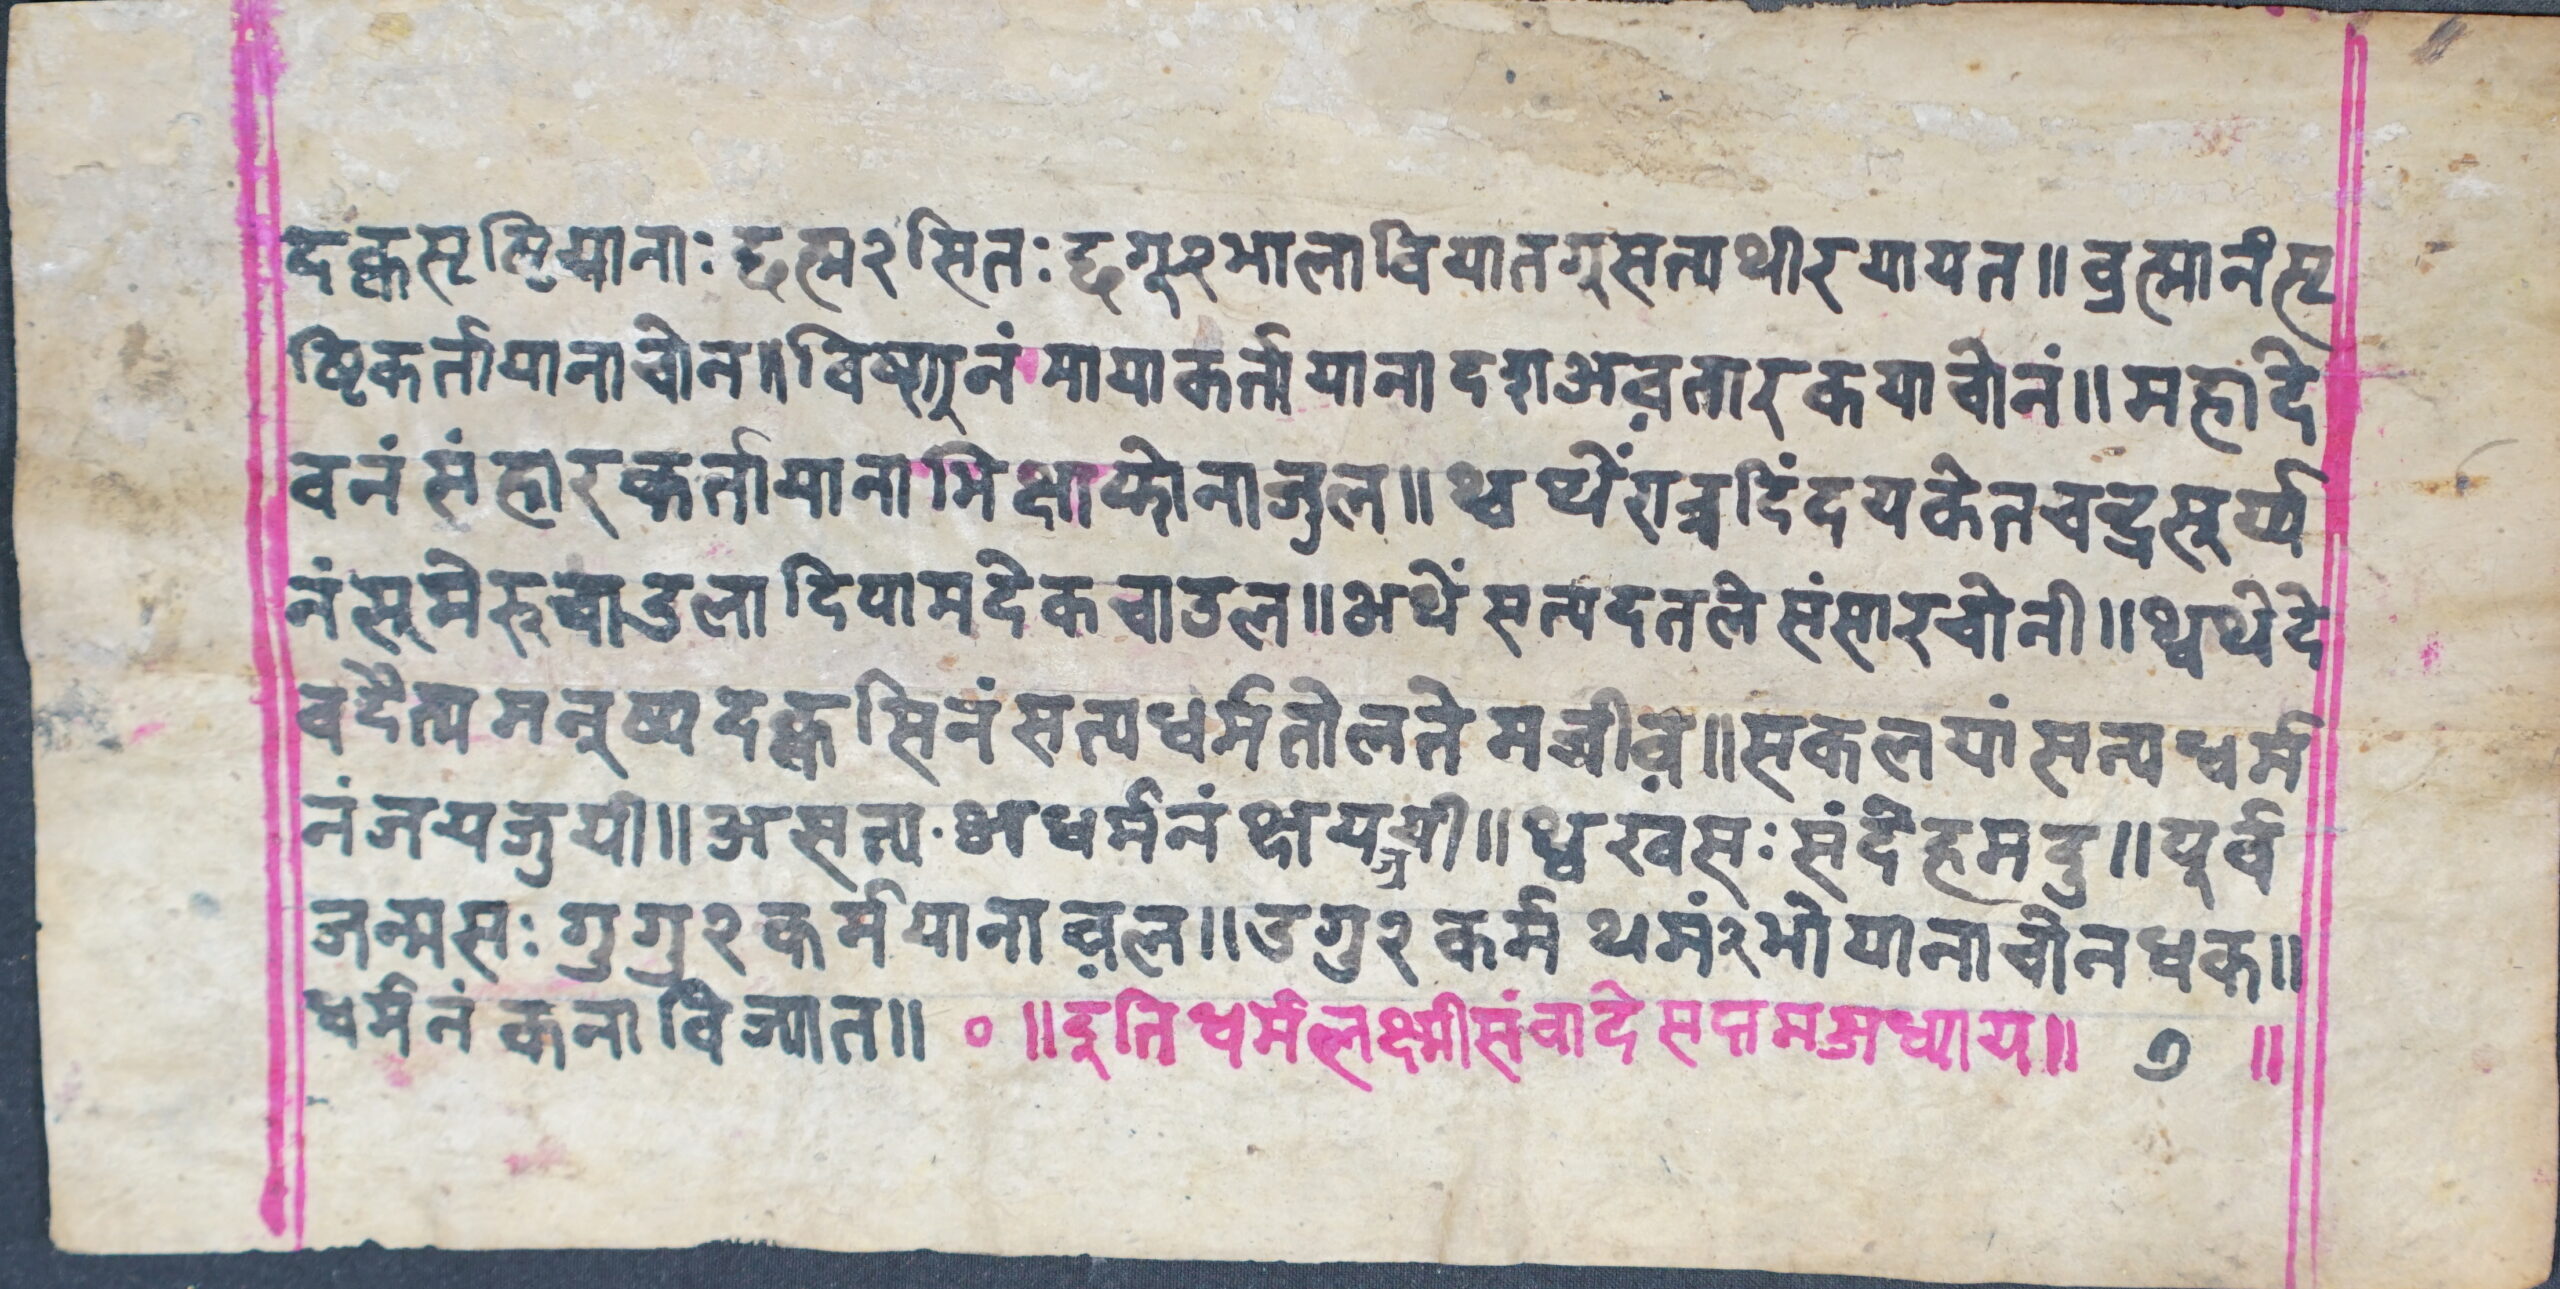 दक्वसृसियानाः छह्म२सितः छगू२भालावियातगुसत्यथीरयायत॥ व्रह्मानंसृ
ष्टिकर्तायानाचोन॥विष्णुनं मायाकर्तायानादशअव़तारकयाचोनं॥महादे
वनंसंहारकर्तायानाभिक्षाफोनाजुल॥थ्वथ्येंरात्रदिंदयकेतचन्द्रसूर्य्य
नंसूमेरुचाउलादियामदेकचाउल॥अथें सत्यदतलेसंसारचोनी॥थ्वथेदे
वदैत्यमनुष्यदक्वसिनंसत्यधर्मतोलतेमत्रीव़॥सकलयांसत्यधर्म
नंजययुयी॥असत्य·अधर्मनंक्षयजुयी॥थ्वखंसःसंदेहमदु॥पूर्व
जन्मसःगुगु२कर्मयानाव़ल॥उगु२कर्मथमं२भोयानाचोनधक॥
धर्मनंकनाविज्यात॥ ० ॥इतिधर्मलक्ष्मीसंवादेसप्तमअध्याय॥ ७ ॥